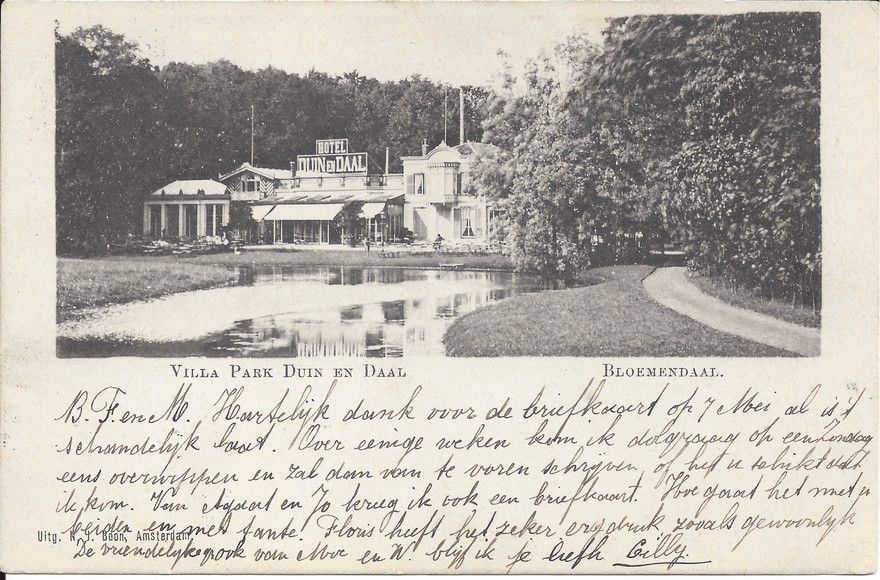 HOTEL
DUIN EN DAAL
VILLA PARK DUIN EN DAAL
BLOEMENDAAL.
B. F. en M. Hartelijk dank voor de briefkaart op 7 Mei al is 't
schandelijk laat. Over eenige weken kom ik dolgraag op een Zondag
eens overwippen en zal dan van te voren schrijven, of het u schikt dat
ik kom. Van Agaat en Jo kreeg ik ook een briefkaart. Hoe gaat het met u
beiden en met tante. Floris heeft het zeker erg druk zooals gewoonlijk
Uitg. N. J. Boon, Amsterdam.
De vriendelijke van Moe en W. blijf ik je liefh Cilly.